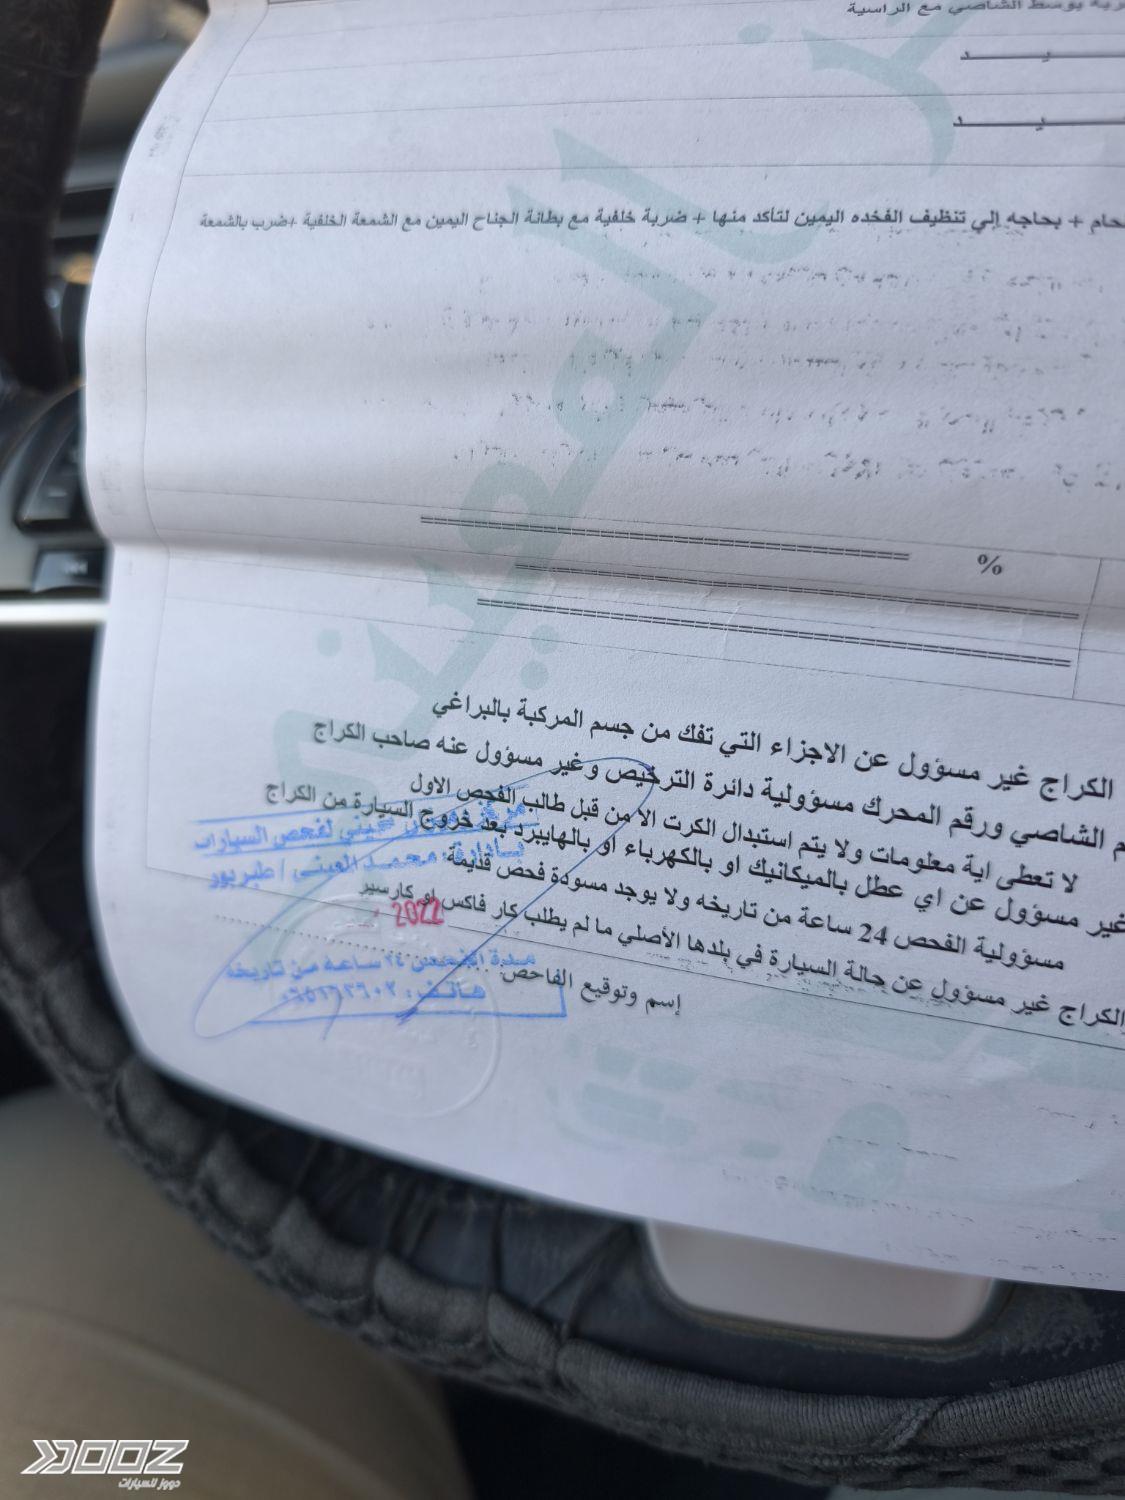 ضربة بوسط الشاصي مع الراسية
يد
يد
لحام + بحاجه إلي تنظيف الفخده اليمين لتأكد منها + ضربة خلفية مع بطانة الجناح اليمين مع الشمعة الخلفية +ضرب بالشمعة
%
الكراج غير مسؤول عن الاجزاء التي تفك من جسم المركبة بالبراغي
الشاصي ورقم المحرك مسؤولية دائرة الترخيص وغير مسؤول عنه صاحب الكراج
لا تعطى اية معلومات ولا يتم استبدال الكرت الا من قبل طالب الفحص الاول
غير مسؤول عن اي عطل بالميكانيك او بالكهرباء او بالهايبرد بعد خروج السيارة من الكراج
مسؤولية الفحص 24 ساعة من تاريخه ولا يوجد مسودة فحص قديمة
الكراج غير مسؤول عن حالة السيارة في بلدها الأصلي ما لم يطلب كار فاكس او كارسير
إسم وتوقيع الفاحص
لفحص السيارات
بادارة: محمد المعيني / طبربور
2022
مدة الفحص ٢٤ ساعة من تاريخه
هاتف:
DOOZ
دووز للسيارات